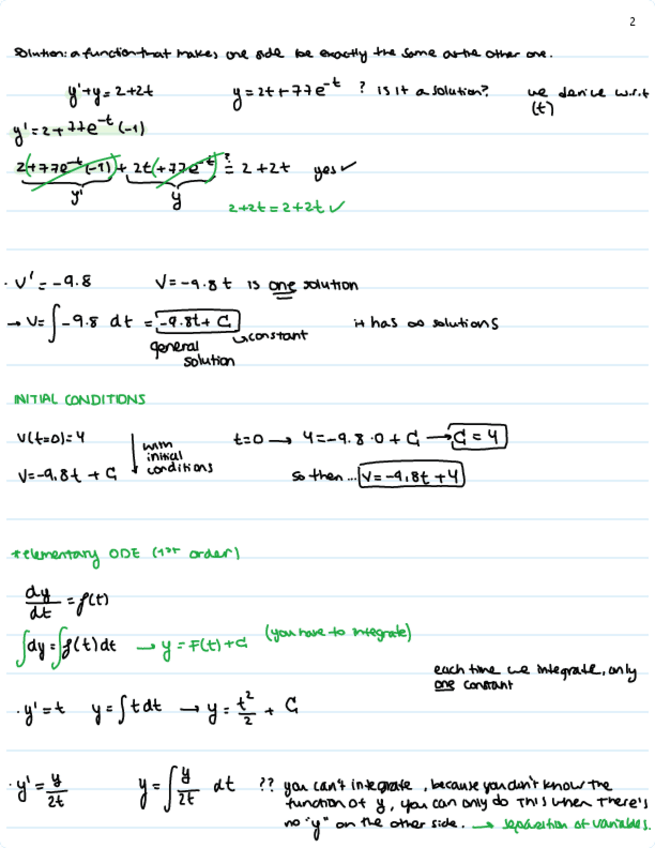 2
Solution: a function that makes one side be exactly the same as the other one.
y'+y=2+2t    y=2t+77e^-t ? is it a solution?    we derive w.r.t (t)
y'=2+77e^-t(-1)
2(+77e^-t(-1))+2t(+77e^-t) ?= 2+2t    yes ✓
y'    y
2+2t=2+2t ✓
· v'=-9.8    v=-9.8t is one solution
→ v=∫-9.8 dt = -9.8t+C    it has ∞ solutions
general solution    ↳ constant
INITIAL CONDITIONS
v(t=0)=4    with initial conditions    t=0 → 4=-9.8·0+C → C=4
v=-9.8t+C    so then... v=-9.8t+4
*elementary ODE (1st order)
dy/dt = f(t)
∫dy=∫f(t)dt → y=F(t)+C    (you have to integrate)
each time we integrate, only
one constant
· y'=t    y=∫t dt → y=t²/2 + C
· y'=y/2t    y=∫y/2t dt    ?? you can't integrate, because you don't know the
function of y, you can only do this when there's
no "y" on the other side. → separation of variables.